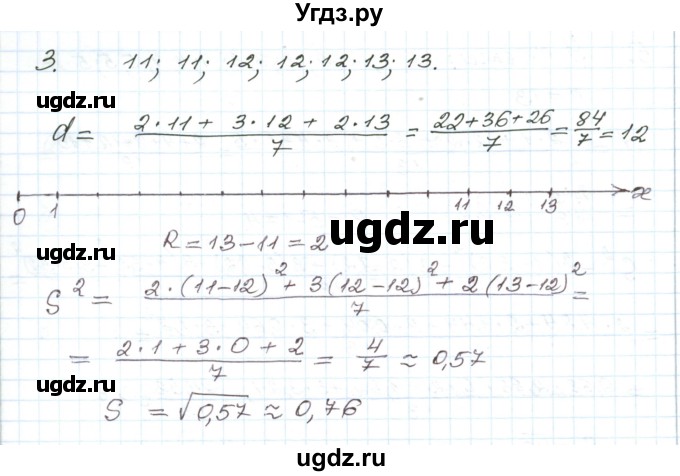 Угдз.ру
3. 11; 11; 12; 12; 12; 13; 13.
ugdz.ru ugdz.ru ugdz.ru
d = (2·11 + 3·12 + 2·13)/7 = (22+36+26)/7 = 84/7 = 12
0 1 11 12 13 x
R = 13-11 = 2
ugdz.ru
ugdz.ru ugdz.ru
S² = (2·(11-12)² + 3(12-12)² + 2(13-12)²)/7 =
= (2·1 + 3·0 + 2)/7 = 4/7 ≈ 0,57
ugdz.ru ugdz.ru ugdz.ru
S = √0,57 ≈ 0,76